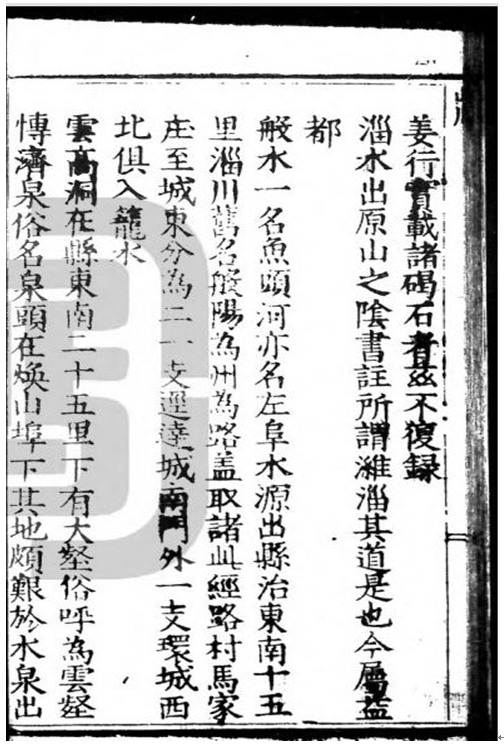 姜行實載諸碣石者茲不復録
淄水出原山之陰書註所謂濰淄其道是也今屬益
都
般水一名魚頭河亦名左阜水源出縣治東南十五
里淄川舊名般陽為州為路盖取諸此經路村馬家
庄至城東分為二一支逕達城南門外一支環城西
北俱入籠水
雲髙洞在縣東南二十五里下有大壑俗呼為雲壑
愽濟泉俗名泉頭在煥山埠下其地頗艱於水泉出